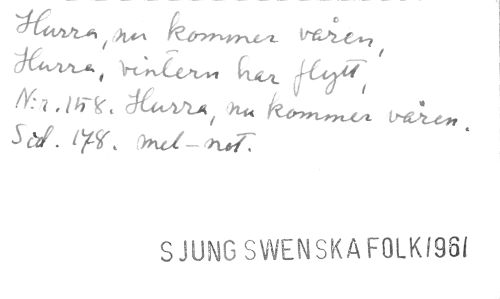 Hurra, nu kommer våren,
Hurra, vintern har flytt,
N:r. 158. Hurra, nu kommer våren.
Sid. 178. mel-not.
SJUNG SWENSKA FOLK/1961